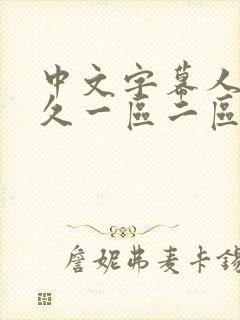 中文字幕人
久一區二區
詹妮弗麦卡錫